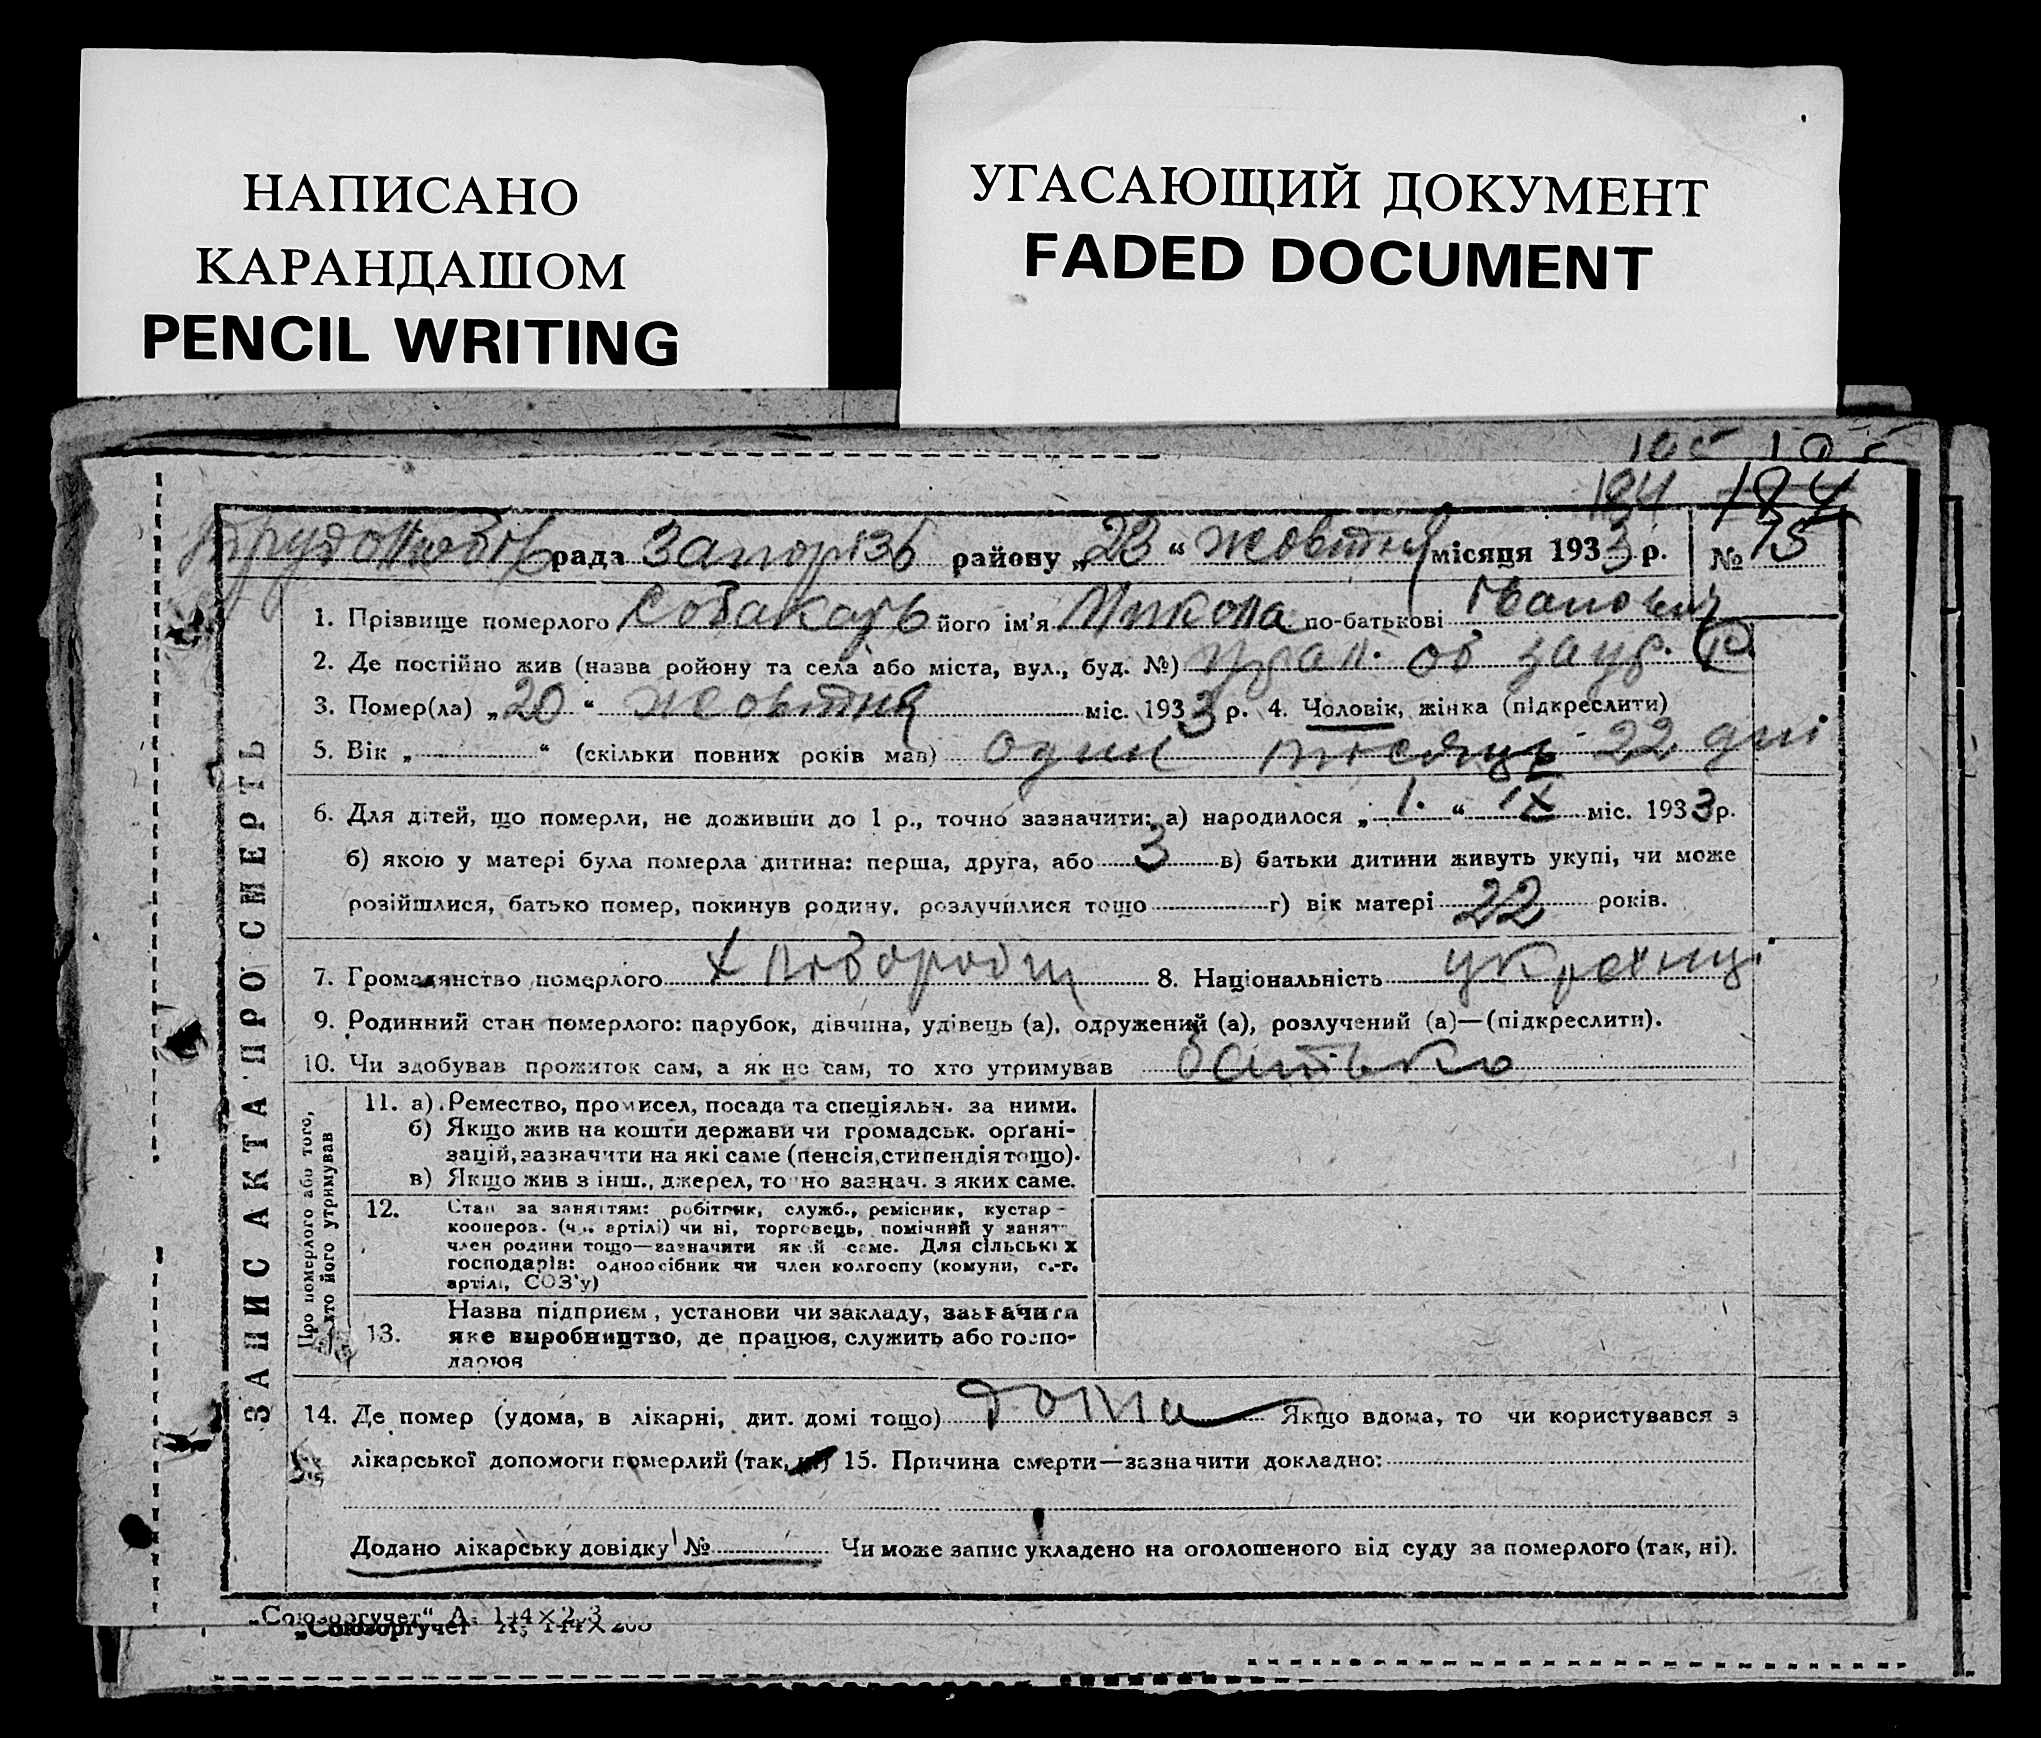 НАПИСАНО
КАРАНДАШОМ
PENCIL WRITING
УГАСАЮЩИЙ ДОКУМЕНТ
FADED DOCUMENT
105 105
184 184
Трудолюбів рада Запорізь району „23“ жовтня місяця 1933 р. № 75
1. Прізвище померлого його ім'я Микола по-батькові Іванович
2. Де постійно жив (назва ройону та села або міста, вул., буд. №)
3. Помер(ла) „20“ жовтня міс. 1933 р. 4. Чоловік, жінка (підкреслити)
5. Вік „ “ (скільки повних років мав) один місяць 22 дні
6. Для дітей, що померли, не доживши до 1 р., точно зазначити: а) народилося „1.“ IX міс. 1933 р.
б) якою у матері була померла дитина: перша, друга, або 3 в) батьки дитини живуть укупі, чи може
розійшлися, батько помер, покинув родину, розлучилися тощо г) вік матері 22 років.
7. Громадянство померлого хлібороби 8. Національність українці
9. Родинний стан померлого: парубок, дівчина, удівець (а), одружений (а), розлучений (а)—(підкреслити).
10. Чи здобував прожиток сам, а як не сам, то хто утримував батько
ЗАПИС АКТА ПРО СМЕРТЬ
Про померлого або того,
хто його утримував
11. а) Ремество, промисел, посада та спеціяльн. за ними.
б) Якщо жив на кошти держави чи громадськ. орґані-
зацій, зазначити на які саме (пенсія, стипендія тощо).
в) Якщо жив з інш., джерел, точно зазнач. з яких саме.
12. Стан за заняттям: робітник, служб., ремісник, кустар-
кооперов. (чл. артілі) чи ні, торговець, помічний у занят.
член родини тощо—зазначити який саме. Для сільських
господарів: одноосібник чи член колгоспу (комуни, с.-г.
артілі, СОЗ'у)
13. Назва підприєм, установи чи закладу, зазначити
яке виробництво, де працює, служить або госпо-
дарює
14. Де помер (удома, в лікарні, дит. домі тощо) дома Якщо вдома, то чи користувався з
лікарської допомоги померлий (так, ні) 15. Причина смерти—зазначити докладно:
Додано лікарську довідку № Чи може запис укладено на оголошеного від суду за померлого (так, ні).
„Союзоргучет“
„Союзоргучет“